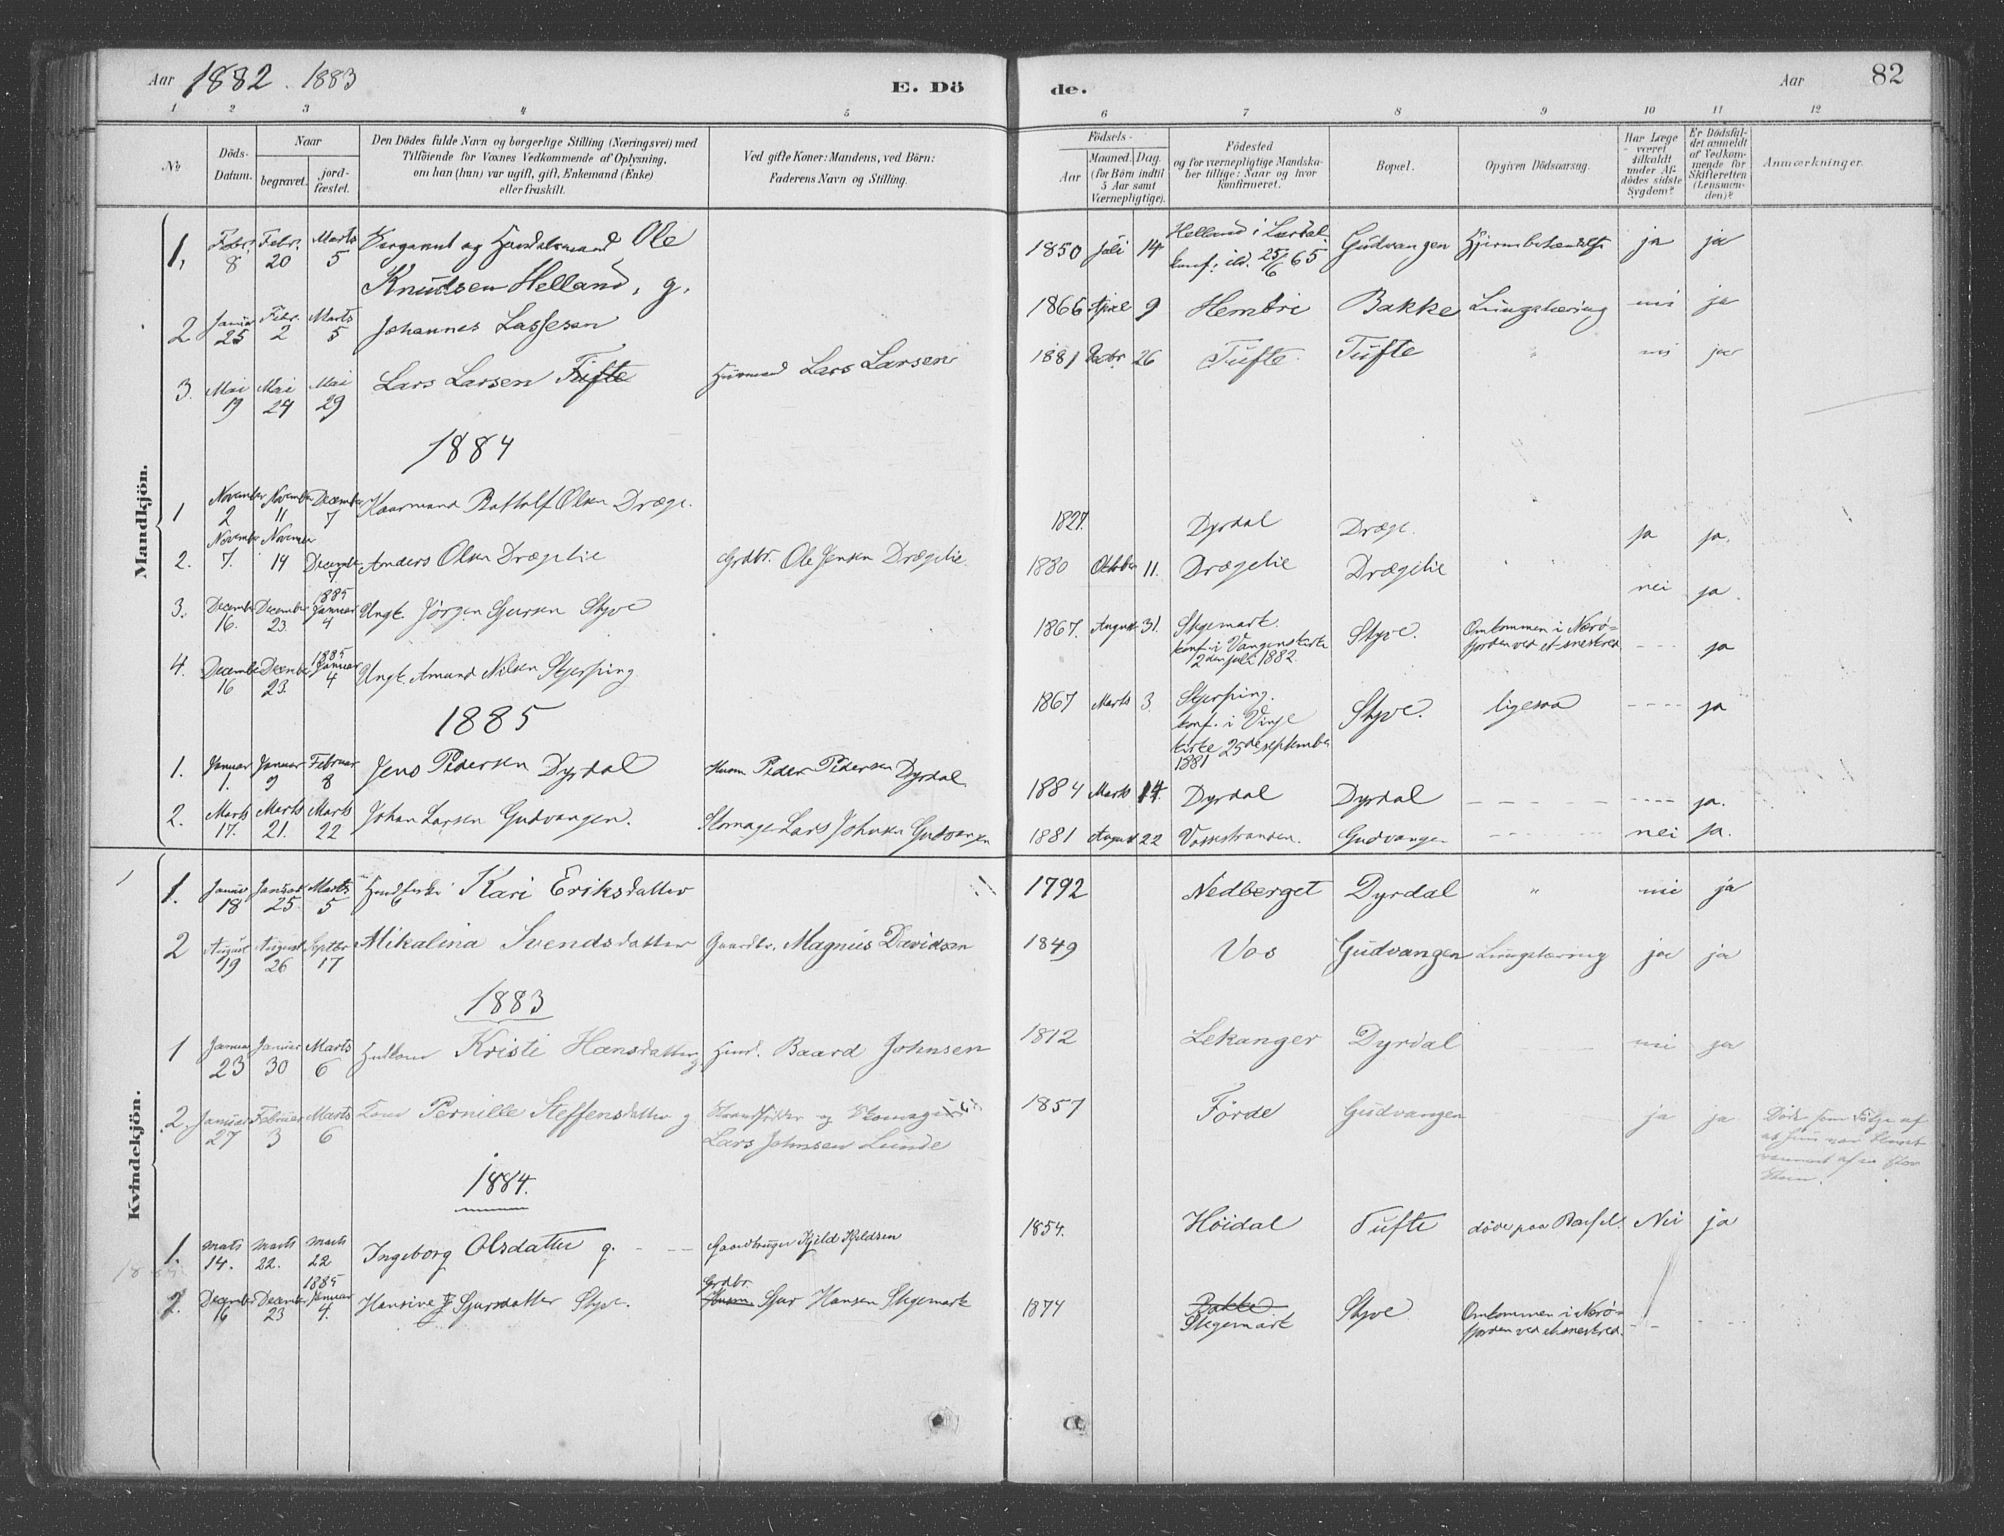 Aar 1882. 1883
E. Dö
de.
Aar
82
1. 2 3 4 5 6 7 8 9 10 11 12
No
Döds-
Datum.
Naar
begravet.
jord-
fæstet.
Den Dödes fulde Navn og borgerlige Stilling (Næringsvei) med
Tilföiende for Voxnes Vedkommende af Oplysning,
om han (hun) var ugift, gift, Enkemand (Enke)
eller fraskilt.
Ved gifte Koner: Mandens, ved Börn:
Faderens Navn og Stilling.
Födsels-
Aar
Maaned. Dag.
(for Börn indtil
5 Aar samt
Værnepligtige).
Födested
og for værnepligtige Mandska-
ber tillige: Naar og hvor
konfirmeret.
Bopæl.
Opgiven Dödsaarsag.
Har Læge
været
tilkaldt
under Af-
dödes sidste
Sygdom?
Er Dödsfal-
det anmeldt
af Vedkom-
mende for
Skifteretten
(Lensman-
den)?
Anmærkninger.
Mandkjön.
1, Febr. 8 Febr. 20 Marts 5 og Ole
Knudsen Helland, g.
1850 Juli 14 Helland i Lærdal
konf: ild. 25/6 65 Gudvangen ja ja
2 Januar 25 Febr. 2 Marts 5 Johannes Lassesen 1866 April 9 Hembri Bakke Lungetæring nei ja
3. Mai 19 Mai 24 Mai 29 Lars Larsen Tufte Huusmand Lars Larsen 1881 Decbr. 26 Tufte Tufte " nei ja
1884
1 November 2 November 11 December 7 Kaarmand Bottolf Olsen Dræge. 1827. Dyrdal Dræge. ja ja.
2. November 7. November 14 December 7 Anders Olsen Drægelie Grdbr. Ole Jensen Drægelie. 1880 Oktober 11. Drægelie Drægelie nei ja.
3. December 16. December 23. 1885 Januar 4 Ungk. Jörgen Sjursen Styve 1867. August 31. Stegemark.
konf. i Vangens kirke
2den juli 1882. Styve. Omkommen i Nærö=
fjorden ved et sneskred. --- ja
4. December 16 December 23. 1885 Januar 4 Ungk. Amund Nilsen Skjerping 1867 Marts 3 Skjerping.
konf. i Vinje
kirke 25de september
1881 Styve. ligesaa ---- ja
1885
1. Januar 1. Januar 9 Februar 8 Jens Pedersen Dyrdal Husm Peder Pedersen Dyrdal 1884 Marts 14. Dyrdal Dyrdal ---- ---- ja.
2. Marts 17. Marts 21. Marts 22 Johan Larsen Gudvangen. Lars Johnsen Gudvangen 1881 August 22 Vossestranden. Gudvangen --- nei ja.
Kvindekjön.
1. Januar 18 Januar 25. Marts 5 Kari Eriksdatter 1792 Nedberget Dyrdal " nei ja
2 August 19 August 26 Septbr 17 Mikalina Svendsdatter Gaardbr. Magnus Davidsen 1849 Vos Gudvangen Lungetæring ja ja
1883
1 Januar 23 Januar 30 Marts 6 Kristi Hansdatter g Huusm. Baard Johnsen 1812 Lekanger Dyrdal nei ja
2. Januar 27 Februar 3 Marts 6 Kone Pernille Steffensdatter g Strandsidder og Skomager
Lars Johnsen Lunde 1857 Förde Gudvangen ja ja Döde som Fölge af
at hun var blevet
af en stor
Steen.
1884.
1. marts 14. marts 22. marts 22 Ingeborg Olsdatter g. --- Gaardbruger Kjeld Kjeldsen 1854. Höidal Tufte döde paa Barsel. Nei ja
2. December 16 December 23 1885 Januar 4. Hansine Sjursdatter Styve. Grdbr.
Husm. Sjur Hansen Stegemark 1874 Bakke
Stegemark Styve Omkommen i Nærö=
fjorden ved et sneskred. -- --